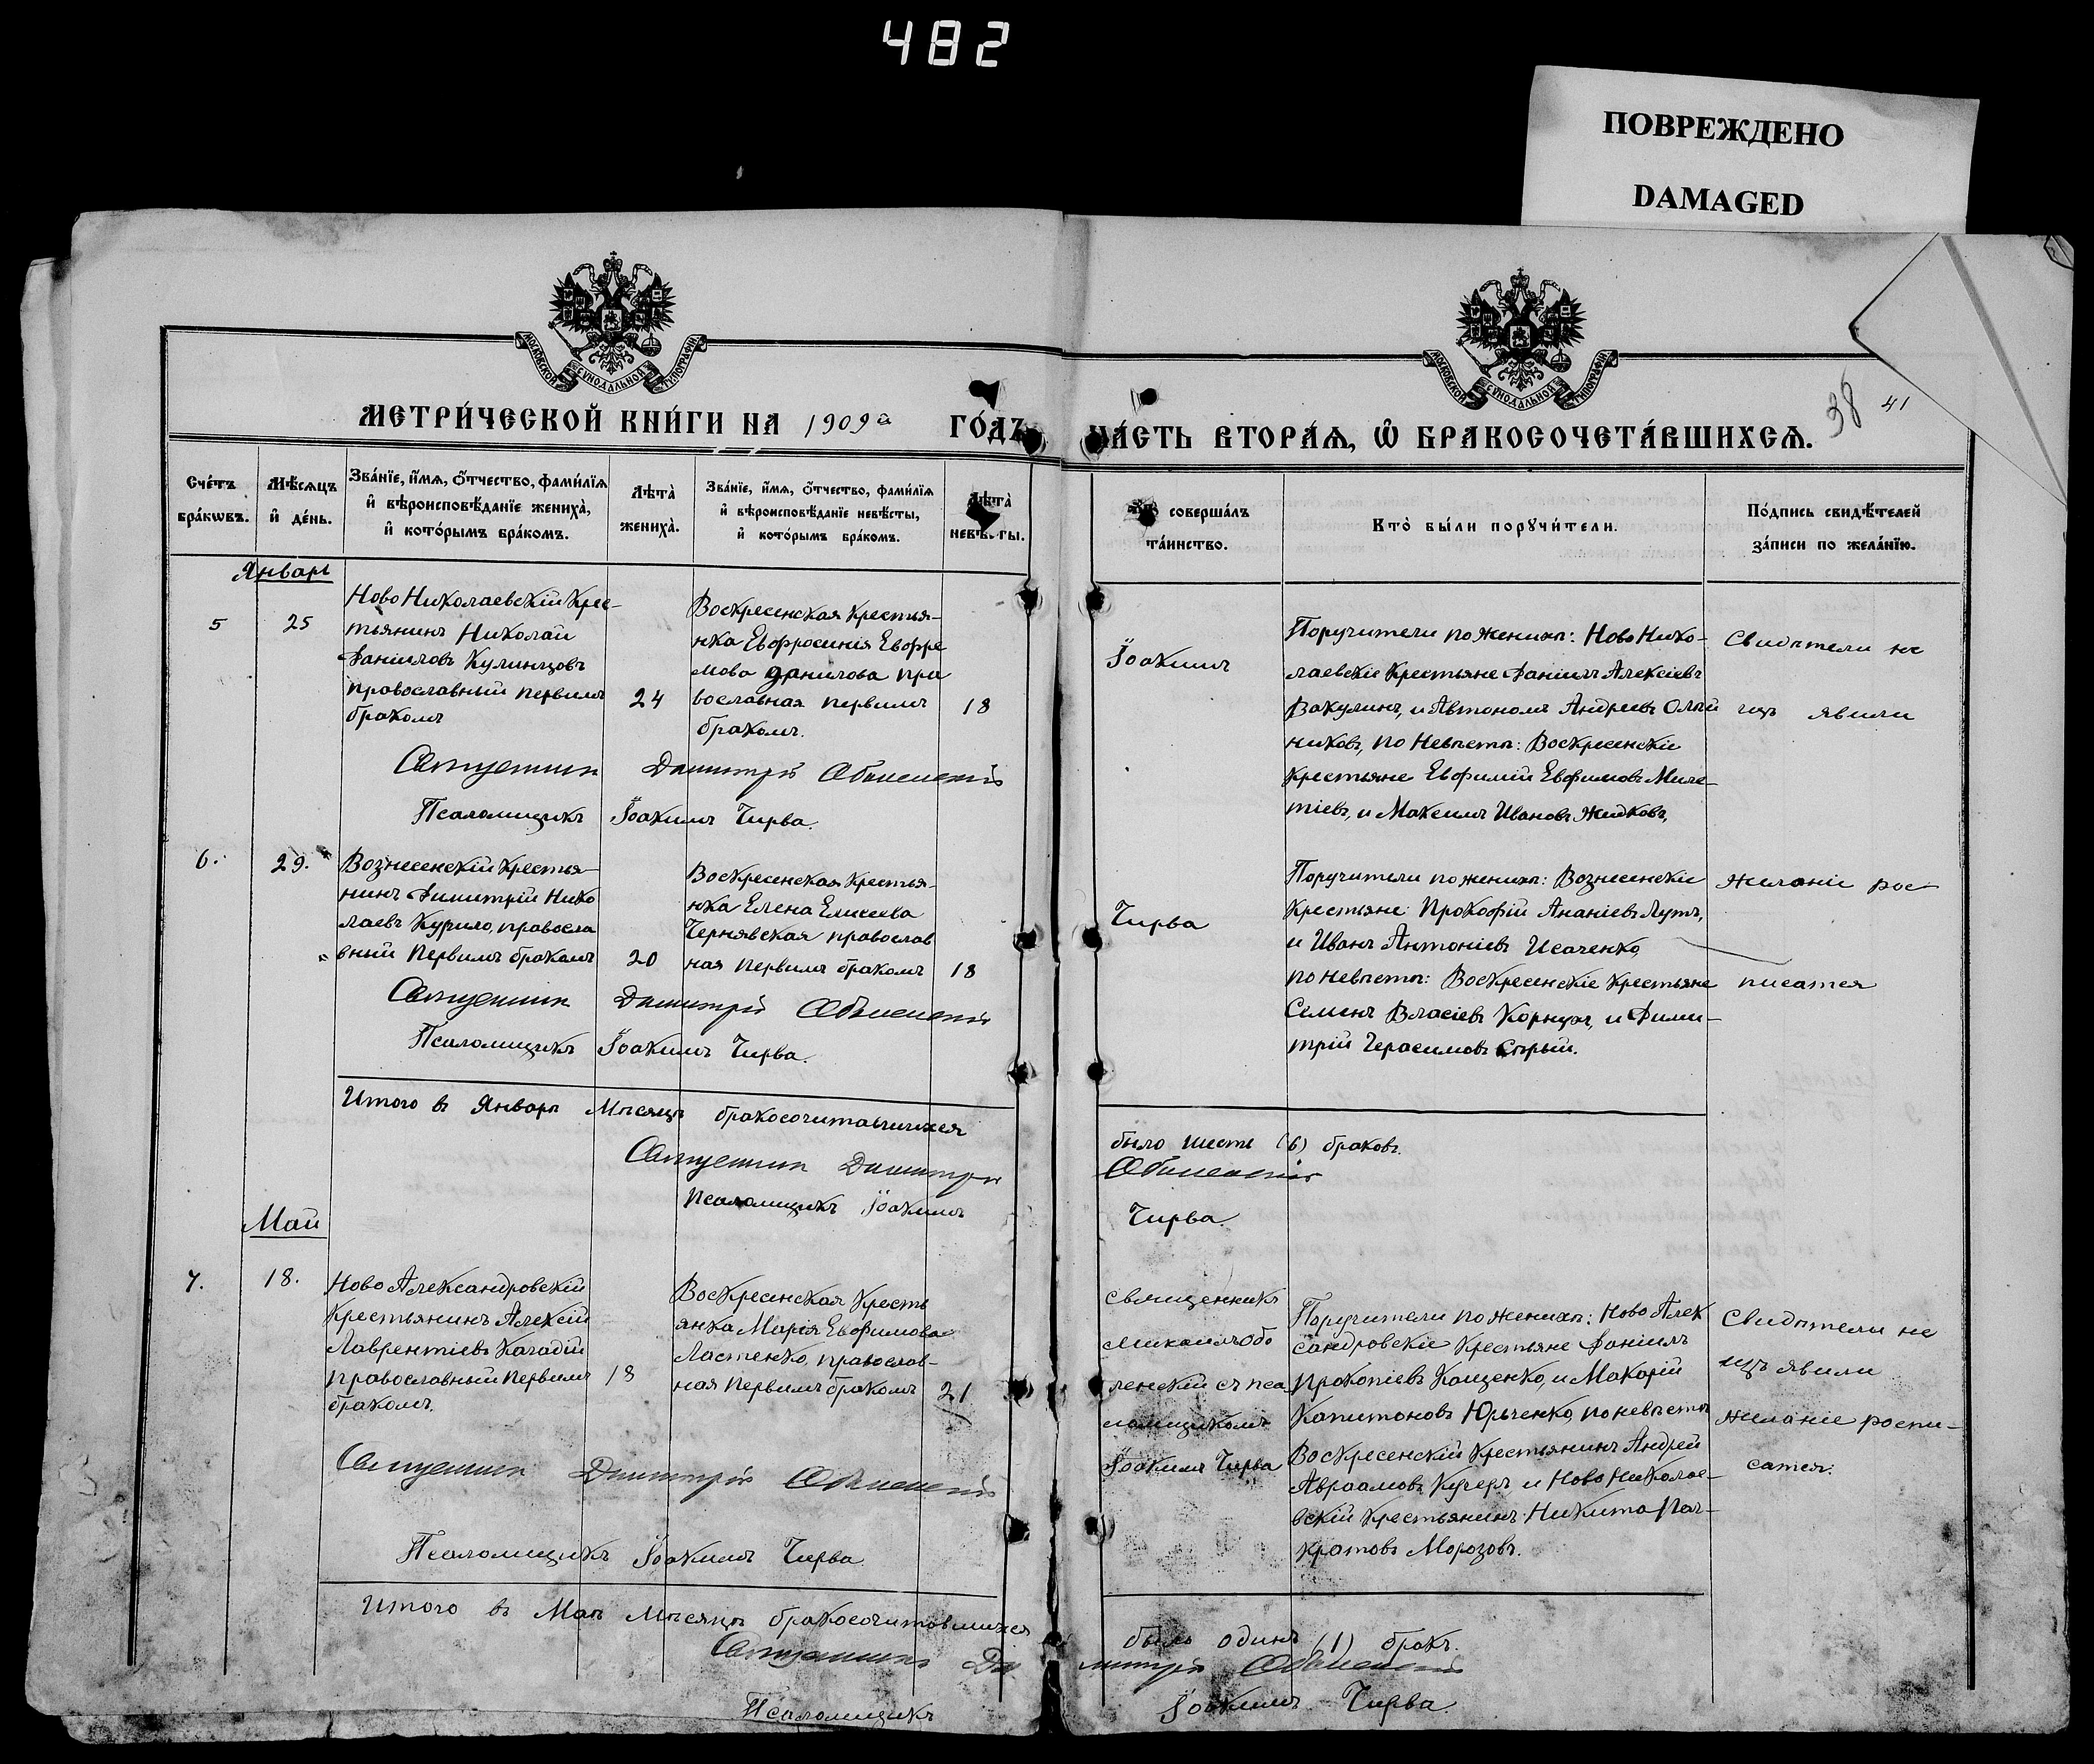 482
ПОВРЕЖДЕНО
DAMAGED
МОСКОВСКОЙ СѴНОДАЛЬНОЙ ТИПОГРАФІИ
МОСКОВСКОЙ СѴНОДАЛЬНОЙ ТИПОГРАФІИ
МЕТРИ́ЧЕСКОЙ КНИ́ГИ НА 1909й ГО́ДЪ
ЧА́СТЬ ВТОРА́Ѧ, Ѽ БРАКОСОЧЕТА́ВШИХСѦ.
38 41
Сче́тъ бра́кѡвъ.
Мѣ́сѧцъ и҆ де́нь.
Зва́нїе, и҆́мѧ, ѻ҆́тчество, фами́лїѧ
и҆ вѣроисповѣ́данїе жениха̀,
и҆ кото́рымъ бра́комъ.
Лѣта̀ жениха̀.
Зва́нїе, и҆́мѧ, ѻ҆́тчество, фами́лїѧ
и҆ вѣроисповѣ́данїе невѣ́сты,
и҆ кото́рымъ бра́комъ.
Лѣта̀ невѣ́сты.
совершалъ
та́инство.
Кто̀ бы́ли порꙋчи́тели.
По́дпись свидѣ́телей
за́писи по жела́нїю.
Январь
5
25
Ново Николаевскій Крес-
тьянинъ Николай
Даніиловъ Кулинцовъ
православный первымъ
бракомъ
24
Воскресенская Крестья-
нка Евфросинія Евфре
мова Данилова пра
вославная первымъ
бракомъ.
18
Іоакимъ
Поручители по женихѣ: Ново Нико-
лаевскіе Крестьяне Даніилъ Алексіевъ
Вакулинъ, и Автономъ Андреевъ Олѣй
никовъ, по Невѣстѣ: Воскресенскіе
Крестьяне Евфимій Евфимовъ Миле-
тіевъ, и Максимъ Ивановъ Жидковъ,
Свидѣтели не
изъ явили
Священникъ Димитрій
Псаломщикъ Іоакимъ Чирва.
6.
29.
Вознесенскій Крестья-
нинъ Димитрій Нико
лаевъ Курило, правосла
вный Первымъ бракомъ
20
Воскресенская Крестья-
нка Елена Елисеева
Чернявская православ
ная первымъ бракомъ
18
Чирва
Поручители по женихѣ: Вознесенскіе
Крестьяне: Прокофій Ананіевъ Лутъ,
и Иванъ Антоніевъ Исаченко,
по невѣстѣ: Воскресенскіе Крестьяне
Семенъ Власіевъ Корнухъ, и Дими-
трій Герасимовъ Сѣрый.
желаніе рос-
писатся
Священникъ Димитрій
Псаломщикъ Іоакимъ Чирва.
Итого въ Январѣ Мѣсяцѣ бракосочитавшихся
было шесть (6) браковъ.
Священникъ Димитрій
Псаломщикъ Іоакимъ
Чирва.
Май
7.
18.
Ново Александровскій
Крестьянинъ Алексій
Лаврентіевъ Кагадій
православный первымъ
бракомъ.
18
Воскресенская Кресть
янка Марія Евфимова
Ластенко, православ-
ная первымъ бракомъ
21
Священникъ
Михаилъ Обо
ленскій съ пса
ломщикомъ
Іоакимъ Чирва
Поручители по женихѣ: Ново Алек
сандровскіе Крестьяне Даніилъ
Прокопіевъ Кащенко, и Макарій
Капитоновъ Юрьченко, по невѣстѣ
Воскресенскій Крестьянинъ Андрей
Авраамовъ Кучеръ, и Ново Николае-
вскій Крестьянинъ Никита Пан-
кратовъ Морозовъ.
Свидѣтели не
изъ явили
желаніе роспи-
сатся.
Священникъ Димитрій
Псаломщикъ Іоакимъ Чирва
Итого въ Маѣ Мѣсяцѣ бракосочитовшихся
было одинъ (1) бракъ.
Священникъ Димитрій
Псаломщикъ Іоакимъ Чирва.